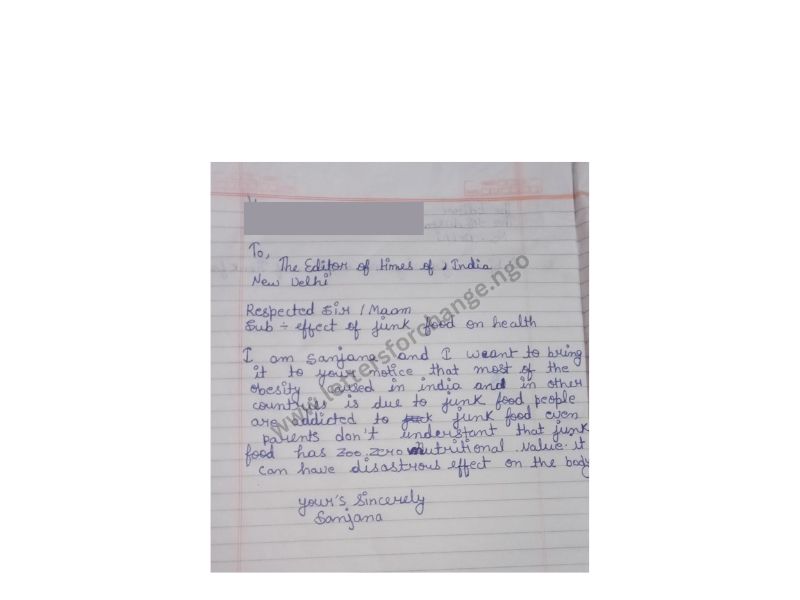 To,
The Editor of times of, India
New Delhi
Respected Sir / Maam
Sub ÷ effect of junk food on health
I am Sanjana and I want to bring
it to your notice that most of the
obesity caused in india and in other
countries is due to junk food people
are addicted to junk food even
parents don't understant that junk
food has zoo zero nutritional value. it
can have disastrous effect on the body
your's Sincerely
Sanjana
www.lettersforchange.ngo